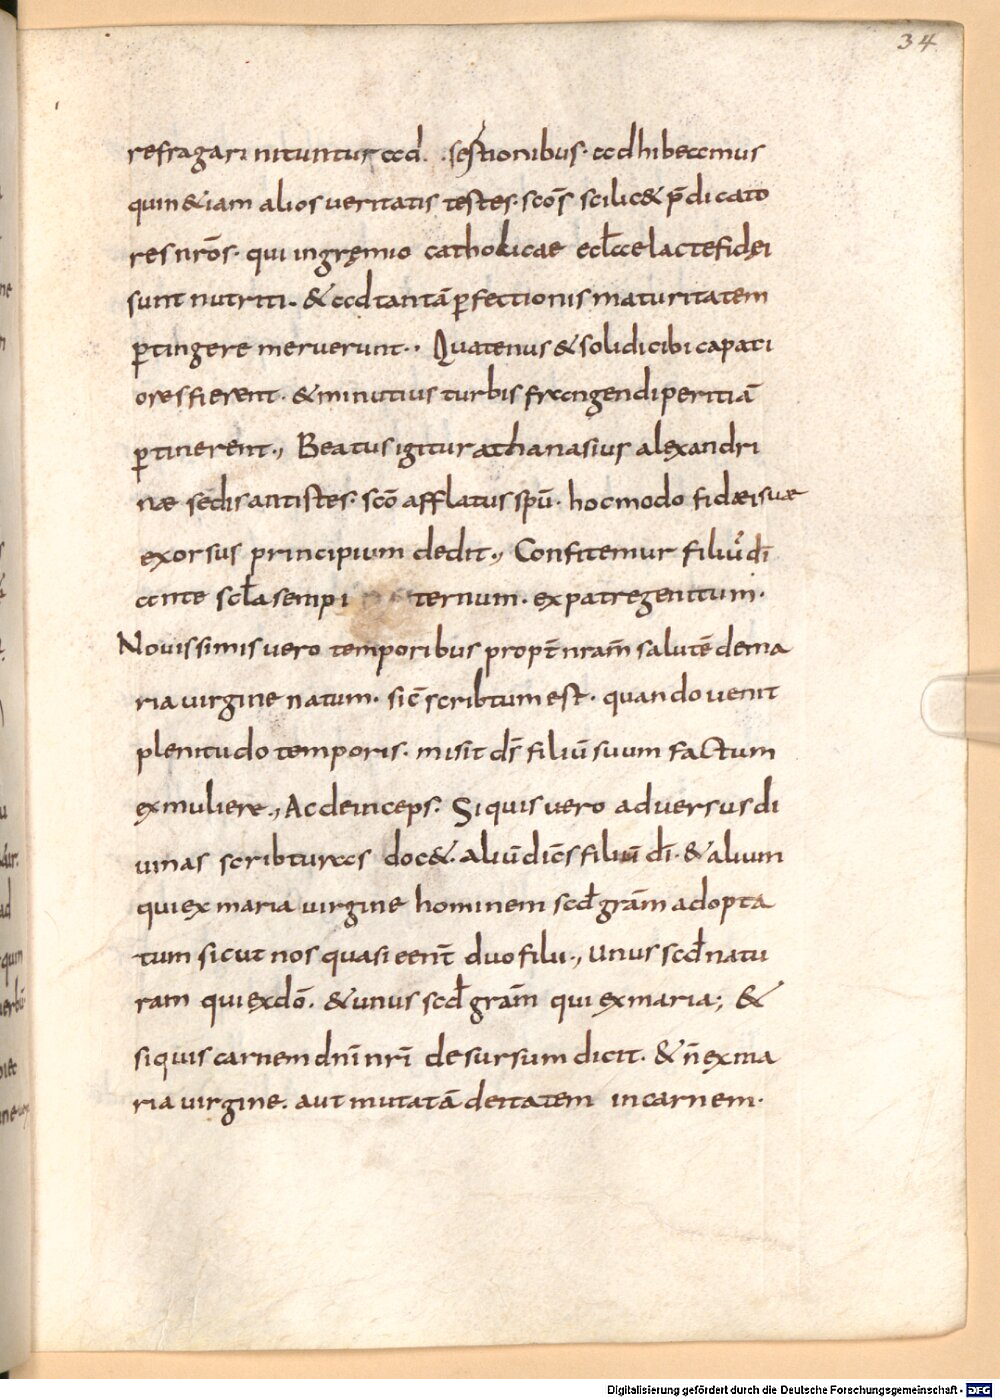 34
refragari nituntur ad . . sestionibus · adhibeamus
quin & iam alios veritatis testes · scōs scilic& p̄dicato
res nrōs · qui in gręmio catholicae eclłae lacte fidei
sunt nutriti · & ad tantā ꝑfectionis maturitatem
ꝑtingere meruerunt · · Quatenus & solidi cibi capati
ores fierent · & minutius turbis frangendi peritiā
ꝑtinerent ·, Beatus igitur athanasius alexandri
næ sedis antistes · scō afflatus spū · hoc modo fidæi suæ
exorsus principium dedit ·, Confitemur filiū dī
ante sclła sempi ternum · ex patre genitum ·
Nouissimis uero temporibus propt̄ nram̄ salutē de ma
ria uirgine natum · sic̄ scribtum est · quando uenit
plenitudo temporis · misit ds̄ filiū suum factum
ex muliere ·, Ac deinceps · Si quis uero aduersus di
uinas scribturas doc& · aliū dicēs filiū dī · & alium
qui ex maria uirgine hominem scd̄ gram̄ adopta
tum sicut nos quasi eent̄ duo filii ·, unus scd̄ natu
ram qui ex dō · & unus scd̄ gram̄ qui ex maria ; &
si quis carnem dnī nrī desursum dicit · & n̄ ex ma
ria uirgine · aut mutatā deitatem in carnem ·
Digitalisierung gefördert durch die Deutsche Forschungsgemeinschaft - DFG